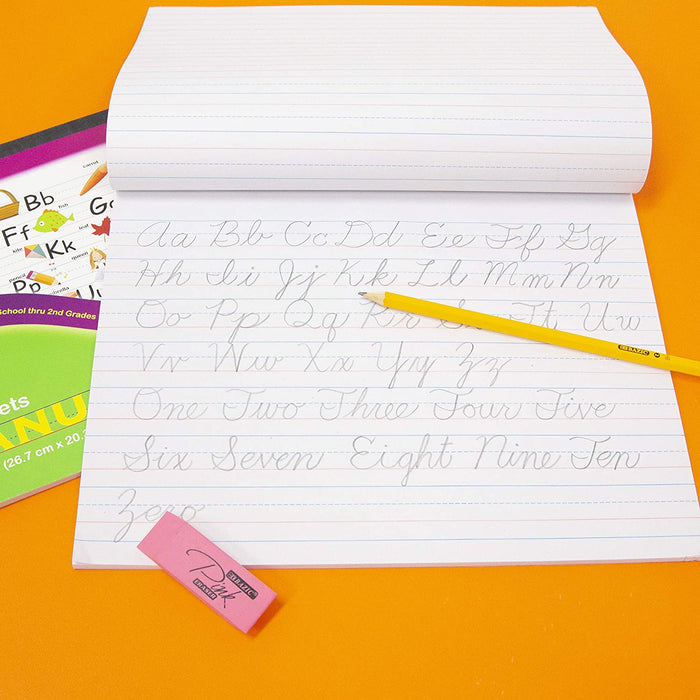 Aa Bb Cc Dd Ee Ff Gg
Hh Ii Jj Kk Ll Mm Nn
Oo Pp Qq Rr Ss Tt Uu
Vv Ww Xx Yy Zz
One Two Three Four Five
Six Seven Eight Nine Ten
Zero
carrot
Bb
fish
Ff
G
leaf
kite
Kk
queen
pencil
Pp
School thru 2nd Grades
ets
ANU
(26.7 cm x 20.3
BAZIC
Pink
BAZIC
ERASER